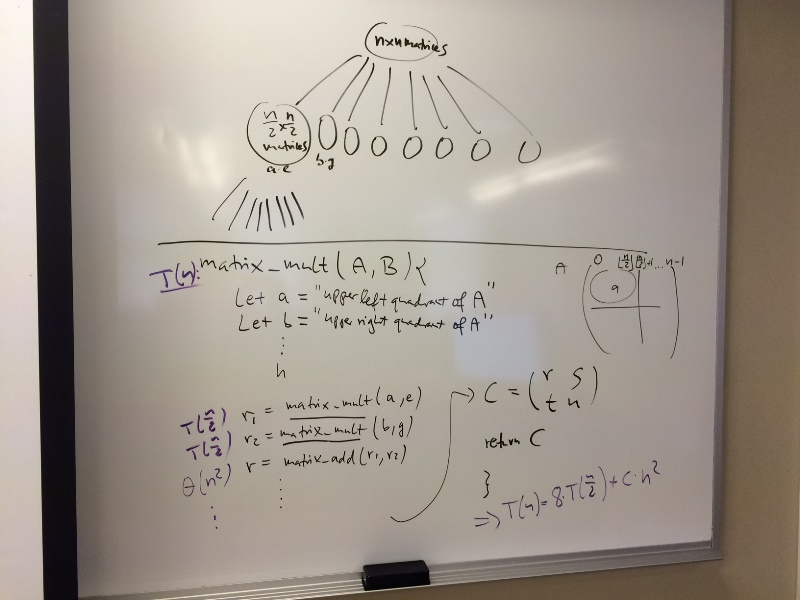 nxn matrices
n/2 x n/2
matrices
a·e
b·g
T(n): matrix_mult(A,B){
Let a = "upper left quadrant of A"
Let b = "upper right quadrant of A"
⋮
h
T(n/2) r₁ = matrix_mult(a,e)
T(n/2) r₂ = matrix_mult(b,g)
Θ(n²) r = matrix_add(r₁,r₂)
⋮ ⋮
A 0 ... n-1
a
→ C = (r s
t u)
return C
}
⇒ T(n) = 8·T(n/2) + c·n²